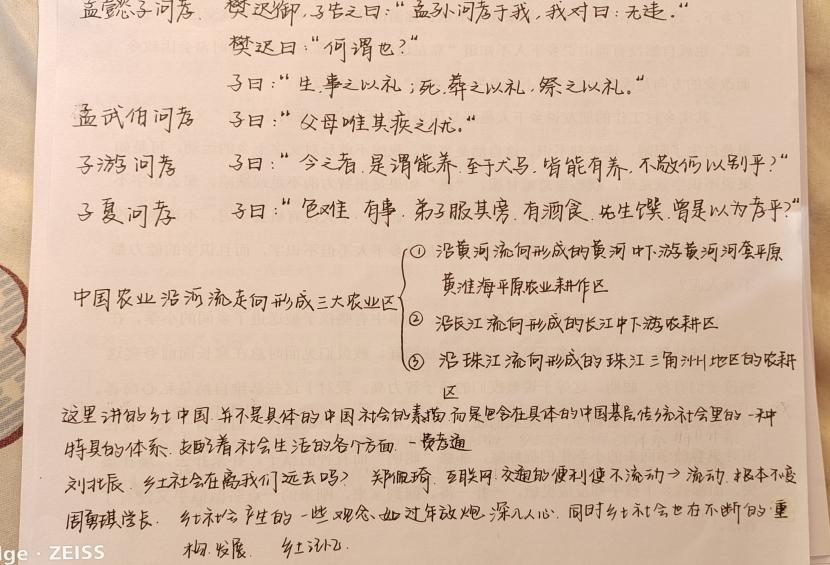 孟懿子问孝. 樊迟御, 子告之曰:“孟孙问孝于我, 我对曰: 无违.”
樊迟曰:“何谓也?”
子曰:“生, 事之以礼; 死, 葬之以礼, 祭之以礼.”
孟武伯问孝 子曰:“父母唯其疾之忧.”
子游问孝 子曰:“今之者, 是谓能养. 至于犬马, 皆能有养, 不敬何以别乎?”
子夏问孝 子曰:“色难 有事, 弟子服其劳, 有酒食, 先生馔, 曾是以为孝乎?”
中国农业沿河流走向形成三大农业区
① 沿黄河流向形成的黄河中下游黄河河套平原
黄淮海平原农业耕作区
② 沿长江流向形成的长江中下游农耕区
③ 沿珠江流向形成的珠江三角洲地区的农耕
区
这里讲的乡土中国, 并不是具体的中国社会的素描, 而是包含在具体的中国基层传统社会里的一种
特具的体系, 支配着社会生活的各个方面. —费孝通
刘北辰. 乡土社会在离我们远去吗? 郑佩琦. 互联网. 交通的便利使不流动→流动. 根本不变
周勇琪学长. 乡土社会产生的一些观念, 如过年放炮, 深入人心. 同时乡土社会也在不断的重
构. 发展. 乡土记忆.
dge · ZEISS